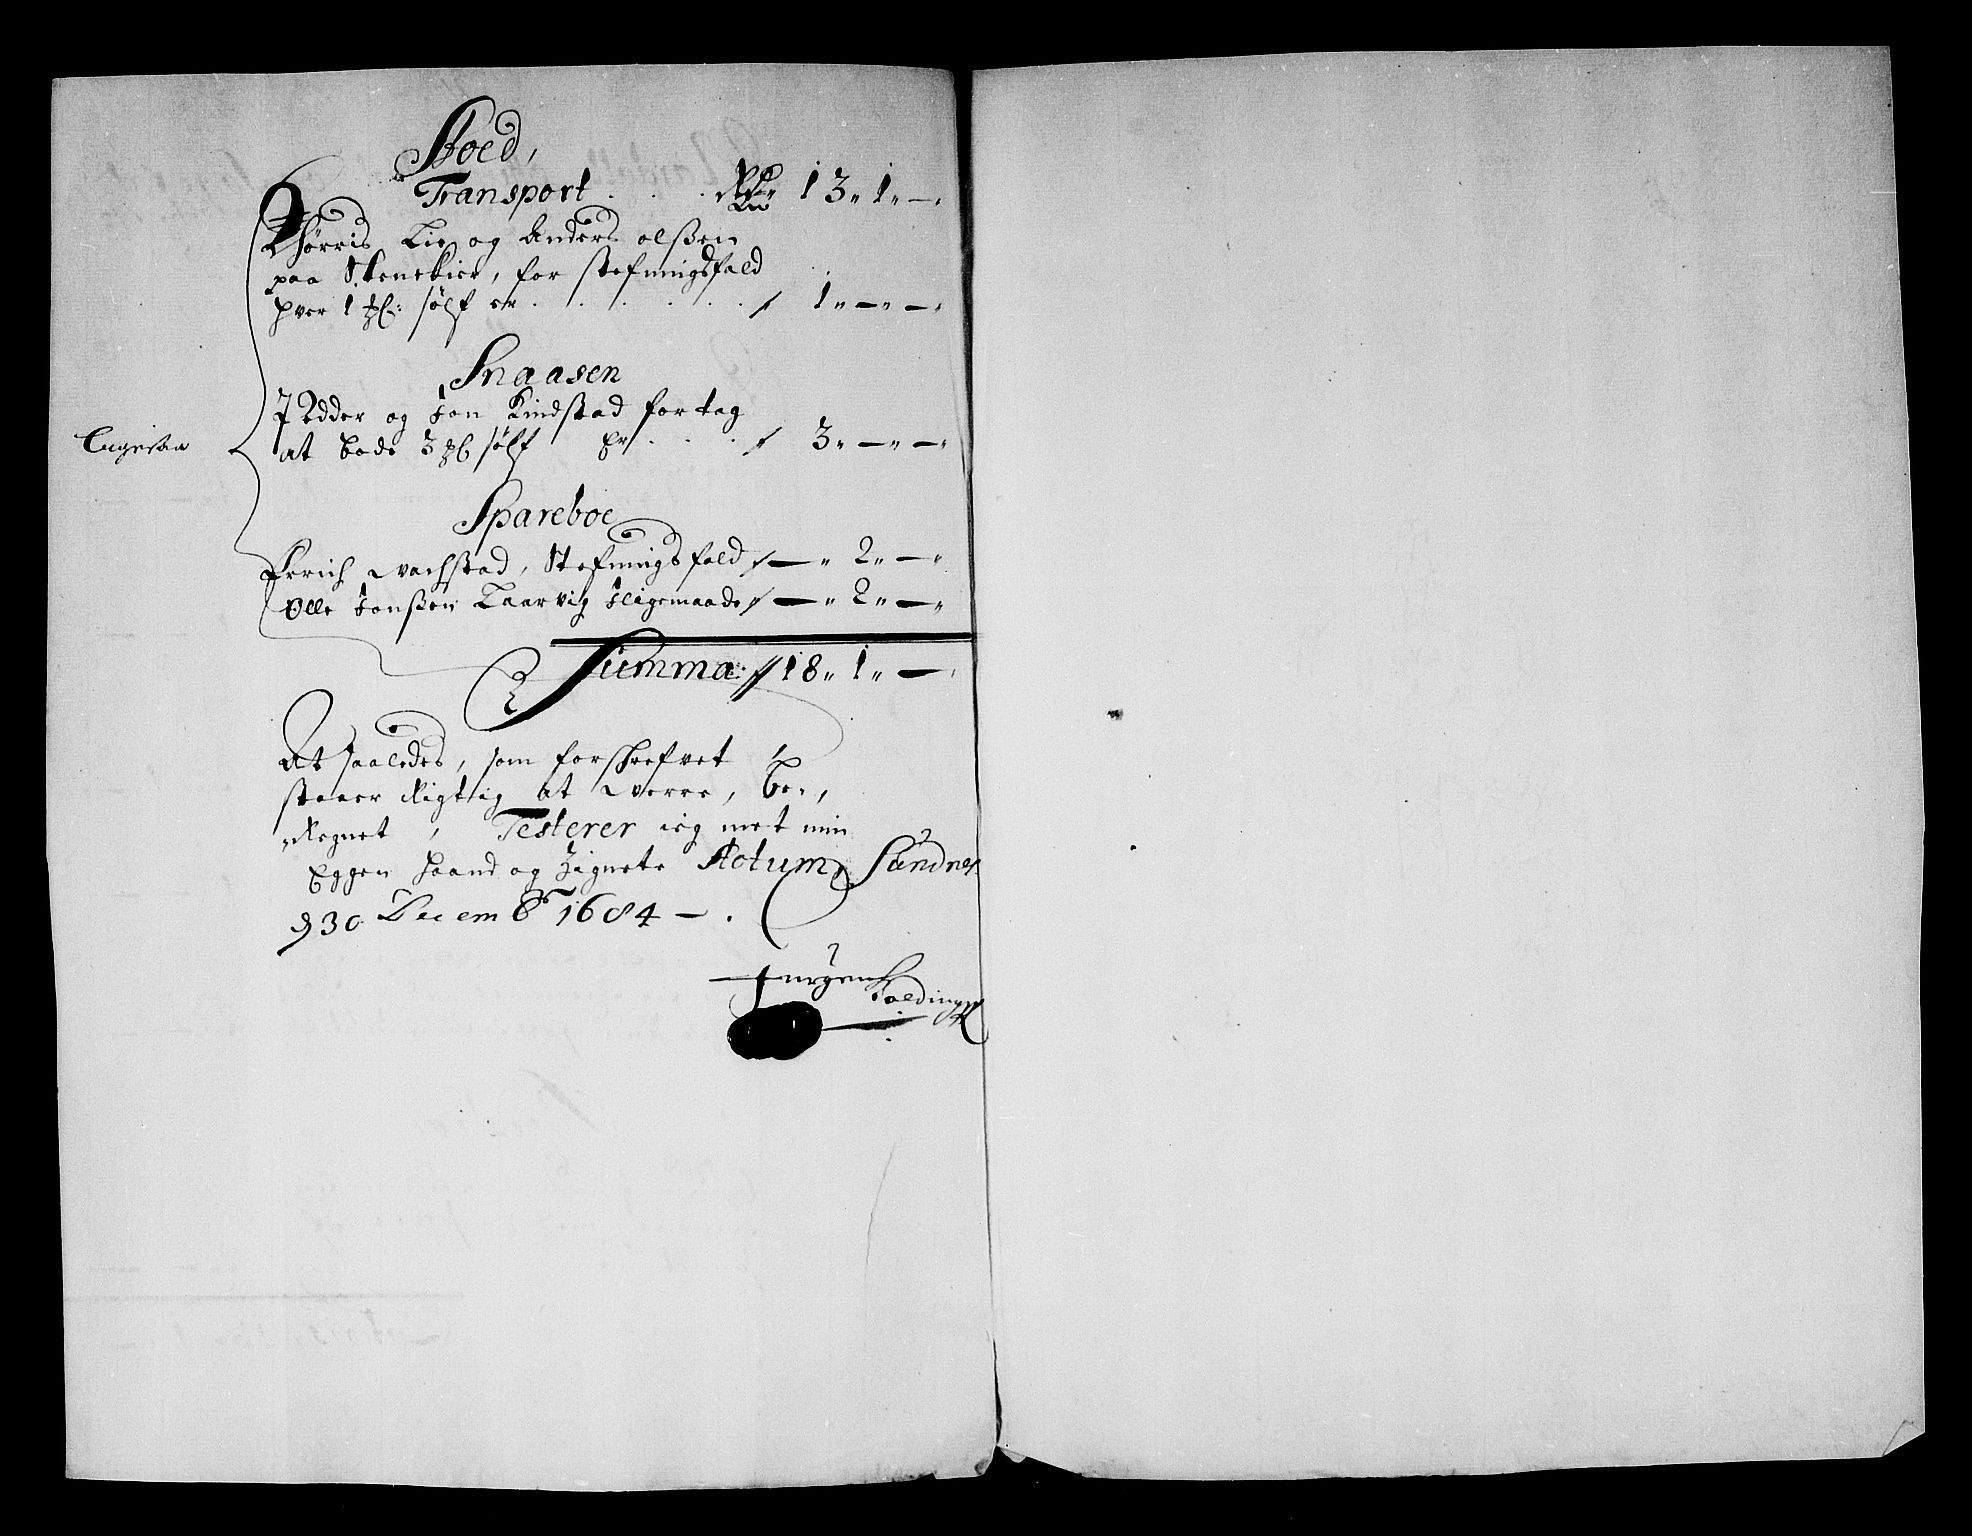 Stoed,
Transport . . . Rdr 13 „ 1 „ — „
Thørris Lie og Anders olßen
paa Stenekier, for stefningsfald
hver 1 ₰: sølf er . . . . . . . 1 „ — „ — „
Snaasen
Peder og Jon Kindstad fortag
at bøde 3 ₰ sølf er . . . 3 „ — „ — „
Spareboe
Errich Wachstad, Stefningsfald — „ 2 „ — „
Olle Jonßen Laarvig Iligemaade — „ 2 „ — „
Summa: 18 „ 1 „ —
At saaledes, som forskrefvet
staaer Rigtig at werre, be,,
Regnet, Testerer ieg met min
Eggen haand og Zignete Actum Sundnes
d 30 Decembr 1684 — .
Jurgen